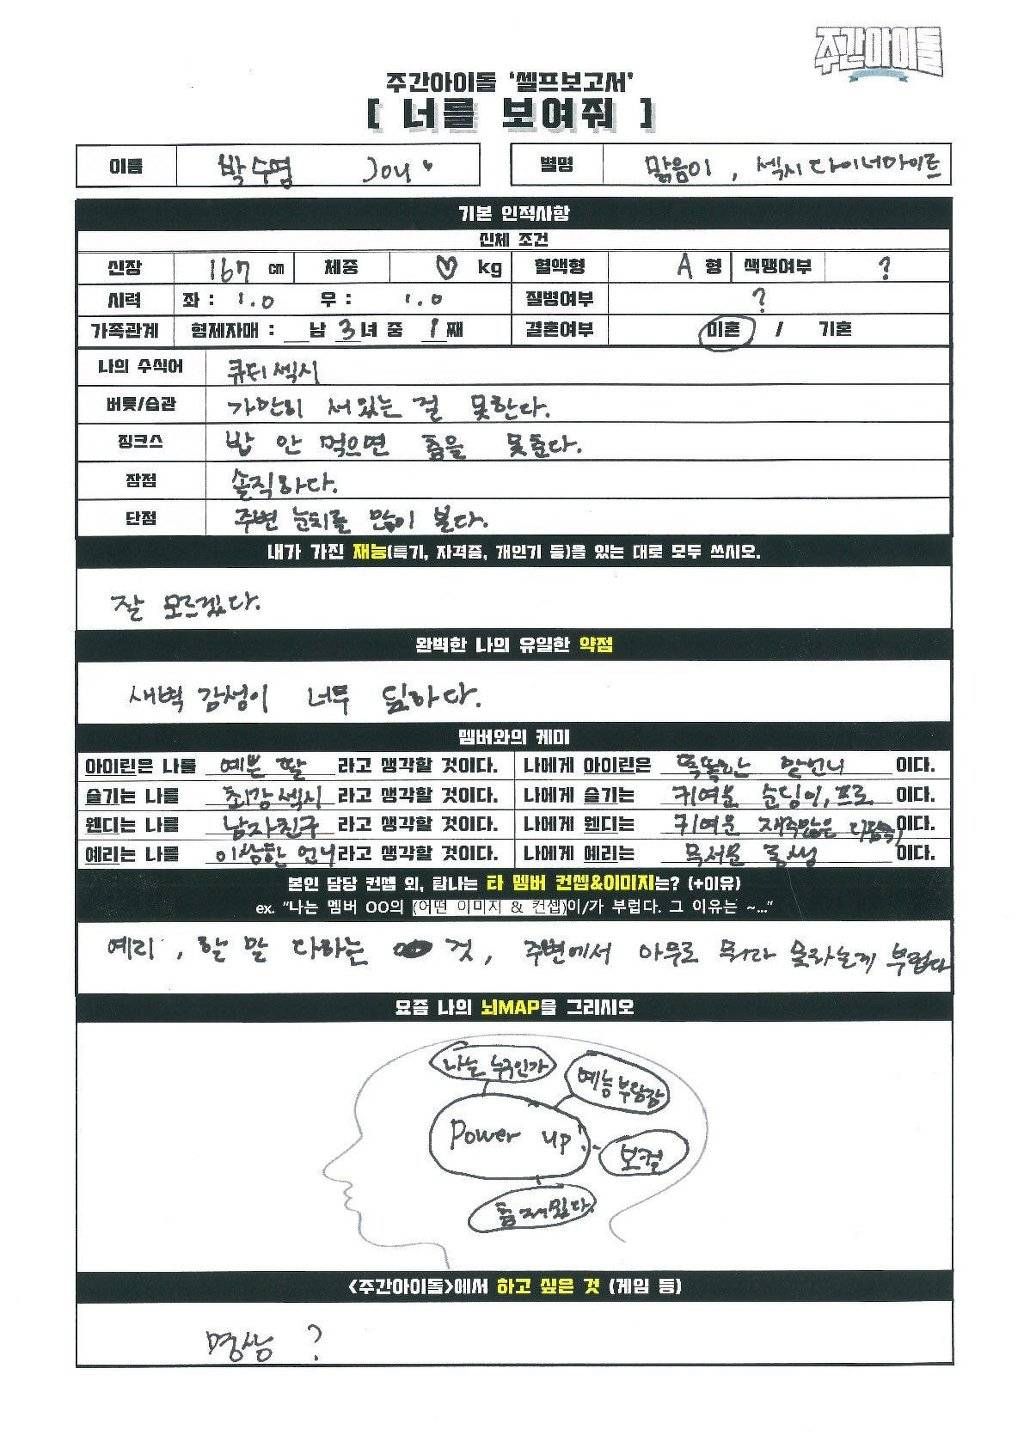 주간아이돌
주간아이돌 '셀프보고서'
[ 너를 보여줘 ]
이름 박수영 Joy ♥ 별명 맑음이, 섹시다이너마이트
기본 인적사항
신체 조건
신장 167 cm 체중 ♡ kg 혈액형 A 형 색맹여부 ?
시력 좌 : 1.0 우 : 1.0 질병여부 ?
가족관계 형제자매 : __남 3녀 중 1째 결혼여부 미혼 / 기혼
나의 수식어 큐티섹시
버릇/습관 가만히 서있는 걸 못한다.
징크스 밥 안 먹으면 춤을 못춘다.
장점 솔직하다.
단점 주변 눈치를 많이 본다.
내가 가진 재능(특기, 자격증, 개인기 등)을 있는 대로 모두 쓰시오.
잘 모르겠다.
완벽한 나의 유일한 약점
새벽 감성이 너무 딥하다.
멤버와의 케미
아이린은 나를 예쁜 딸 라고 생각할 것이다. 나에게 아이린은 똑똑한 맏언니 이다.
슬기는 나를 최강섹시 라고 생각할 것이다. 나에게 슬기는 귀여운 순딩이, 프로 이다.
웬디는 나를 남자친구 라고 생각할 것이다. 나에게 웬디는 귀여운 재주많은 이다.
예리는 나를 이상한 언니 라고 생각할 것이다. 나에게 예리는 무서운 동생 이다.
본인 담당 컨셉 외, 탐나는 타 멤버 컨셉&이미지는? (+이유)
ex. "나는 멤버 OO의 (어떤 이미지 & 컨셉)이/가 부럽다. 그 이유는 ~..."
예리, 할 말 다하는 것, 주변에서 아무도 뭐라 못하는게 부럽다
요즘 나의 뇌MAP을 그리시오
나는 누구인가
예능 부담감
Power up!
보컬
춤 재밌다.
<주간아이돌>에서 하고 싶은 것 (게임 등)
명상 ?